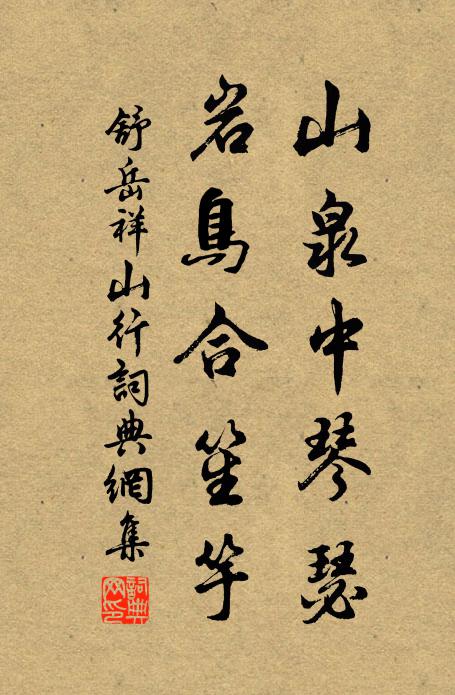 山泉中琴瑟
岩鳥合笙竽
舒岳祥山行詞典網集
詞典网印